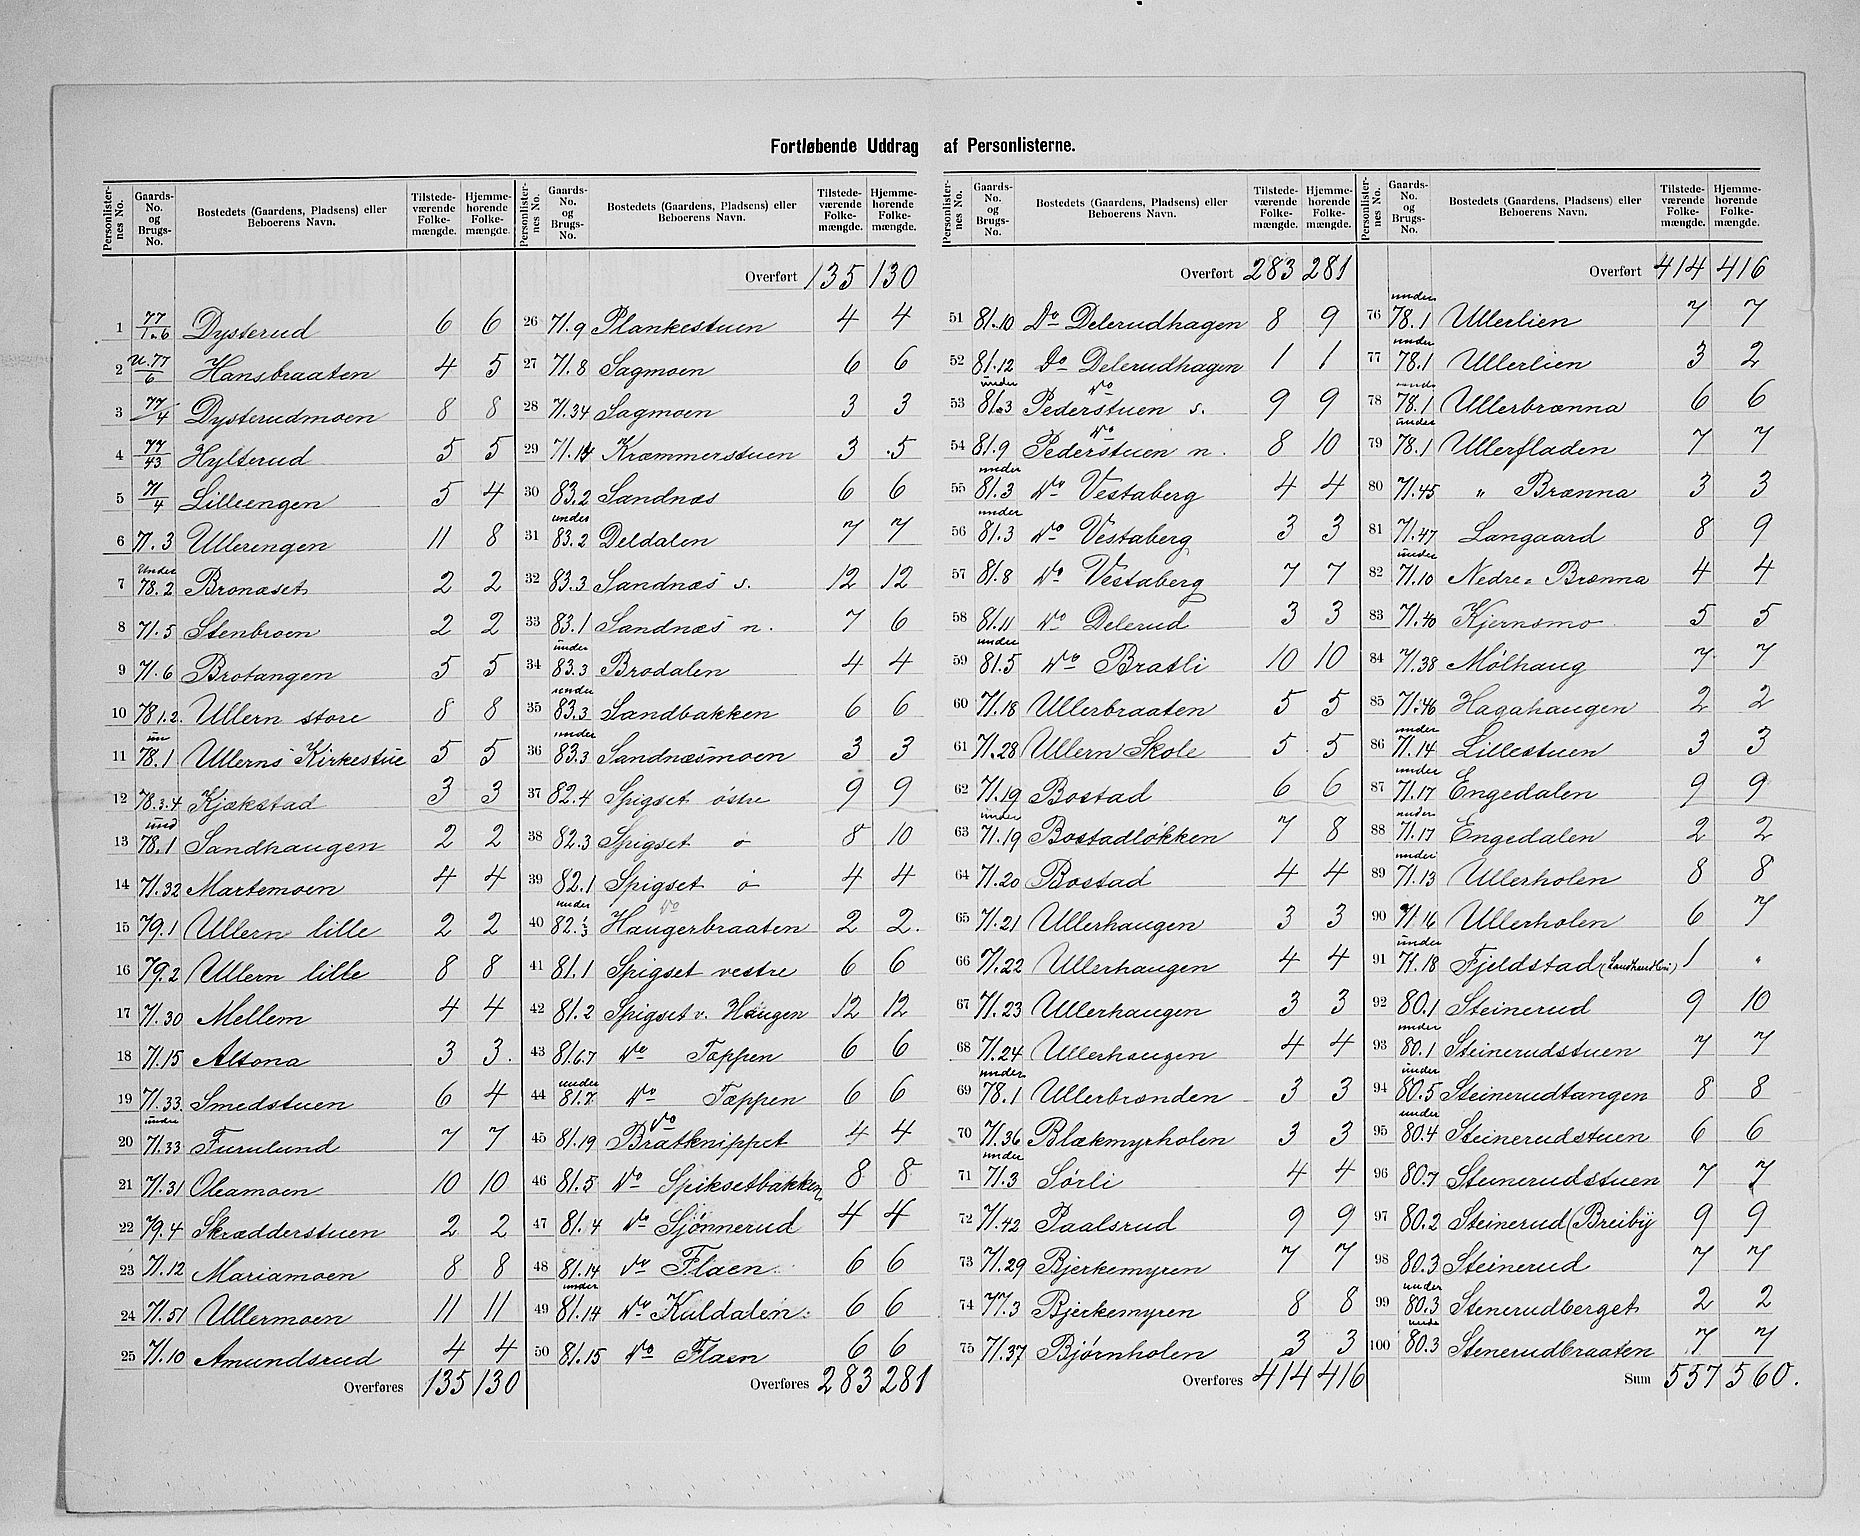 Fortløbende Uddrag af Personlisterne.
Personlister-nes No. | Gaards-No. og Brugs-No. | Bostedets (Gaardens, Pladsens) eller Beboerens Navn. | Tilstede-værende Folke-mængde. | Hjemme-hørende Folke-mængde.
1 77/1.6 Dysterud 6 6
2 u. 77/6 Hansbraaten 4 5
3 77/4 Dysterudmoen 8 8
4 77/43 Hylterud 5 5
5 71/4 Lilleengen 5 4
6 71.3 Ullerengen 11 8
7 Under 78.2 Bronæset 2 2
8 71.5 Stenbroen 2 2
9 71.6 Brotangen 5 5
10 78 1.2. Ullern store 8 8
11 un 78.1 Ullerns Kirkestue 5 5
12 78.3.4 Kjækstad 3 3
13 und 78.1 Sandhaugen 2 2
14 71.32 Martemoen 4 4
15 79.1 Ullern lille 2 2
16 79.2 Ullern lille 8 8
17 71.30 Mellem 4 4
18 71.15 Altona 3 3.
19 71.33. Smedstuen 6 4
20 under 71.33 Furulund 7 7
21 71.31 Oleamoen 10 10
22 79.4 Skrædderstuen 2 2
23 71.12 Mariamoen 8 8
24 71.51 Ullermoen 11 11
25 71.10 Amundsrud 4 4
Overføres 135 130
Personlister-nes No. | Gaards-No. og Brugs-No. | Bostedets (Gaardens, Pladsens) eller Beboerens Navn. | Tilstede-værende Folke-mængde. | Hjemme-hørende Folke-mængde.
Overført 135 130
26 71.9 Plankestuen 4 4
27 71.8 Sagmoen 6 6
28 71.34 Sagmoen 3 3
29 71.14 Kræmmerstuen 3 5
30 83.2 Sandnæs 6 6
31 under 83.2 Deldalen 7 7
32 83.3 Sandnæs s. 12 12
33 83.1 Sandnæs n. 7 6
34 under 83.3 Brodalen 4 4
35 under 83.3 Sandbakken 6 6
36 under 83.3 Sandnæsmoen 3 3
37 82.4 Spigset østre 9 9
38 82.3 Spigset ø 8 10
39 82.1 Spigset ø 4 4
40 under 82. 2/3 Do Haugerbraaten 2 2.
41 81.1 Spigset vestre 6 6
42 81.2 Spigset v. Haugen 12 12
43 81.6.7 Do Tæppen 6 6
44 under 81.7. Do Tæppen 6 6
45 81.19 Do Bratknippet 4 4
46 81.5 Do Spiksetbakken 8 8
47 81.4 Do Sjønnerud 4 4
48 81.14 Do Flaen 6 6
49 under 81.14 Do Kuldalen 6 6
50 81.15 Do Flaen 6 6
Overføres 283 281
Personlister-nes No. | Gaards-No. og Brugs-No. | Bostedets (Gaardens, Pladsens) eller Beboerens Navn. | Tilstede-værende Folke-mængde. | Hjemme-hørende Folke-mængde.
Overført 283 281
51 81.10 Do Delerudhagen 8 9
52 81.12 Do Delerudhagen 1 1
53 under 81.3 Do Pederstuen s. 9 9
54 81.9 Do Pederstuen n. 8 10
55 under 81.3 Do Vestaberg 4 4
56 under 81.3 Do Vestaberg 3 3
57 81.8 Do Vestaberg 7 7
58 81.11 Do Delerud 3 3
59 under 81.5 Do Bratli 10 10
60 71.18 Ullerbraaten 5 5
61 71.28 Ullern Skole 5 5
62 71.19 Bostad 6 6
63 under 71.19 Bostadløkken 7 8
64 71.20 Bostad 4 4
65 71.21 Ullerhaugen 3 3
66 71.22 Ullerhaugen 4 4
67 71.23 Ullerhaugen 3 3
68 71.24 Ullerhaugen 4 4
69 under 78.1 Ullerbrønden 3 3
70 71.36 Blækmyrholen 3 3
71 under 71.3 Sørli 4 4
72 71.42 Paalsrud 9 9
73 71.29 Bjerkemyren 7 7
74 77.3 Bjerkemyren 8 8
75 71.37 Bjørnholen 3 3
Overføres 414 416
Personlister-nes No. | Gaards-No. og Brugs-No. | Bostedets (Gaardens, Pladsens) eller Beboerens Navn. | Tilstede-værende Folke-mængde. | Hjemme-hørende Folke-mængde.
Overført 414 416
76 under 78.1 Ullerlien 7 7
77 under 78.1 Ullerlien 3 2
78 under 78.1 Ullerbrænna 6 6
79 under 78.1 Ullerfladen 7 7
80 71.45 " Brænna 3 3
81 71.47 Langaard 8 9
82 under 71.10 Nedre Brænna 4 4
83 71.40 Kjernsmo 5 5
84 71.38 Mølhaug 7 7
85 71.46 Hagahaugen 2 2
86 under 71.14 Lillestuen 3 3
87 under 71.17 Engedalen 9 9
88 under 71.17 Engedalen 2 2
89 under 71.13 Ullerholen 8 8
90 71.16 Ullerholen 6 7
91 under 71.18 Fjeldstad (Landhandleri) 1 "
92 80.1 Steinerud 9 10
93 under 80.1 Steinerudstuen 7 7
94 under 80.5 Steinerudtangen 8 8
95 under 80.4 Steinerudstuen 6 6
96 80.7 Steinerudstuen 7 7
97 80.2 Steinerud (Breiby 9 9
98 80.3 Steinerud 7 7
99 under 80.3 Stenerudberget 2 2
100 unde 80.3 Stenerudbraaten 7 7
Sum 557 560.